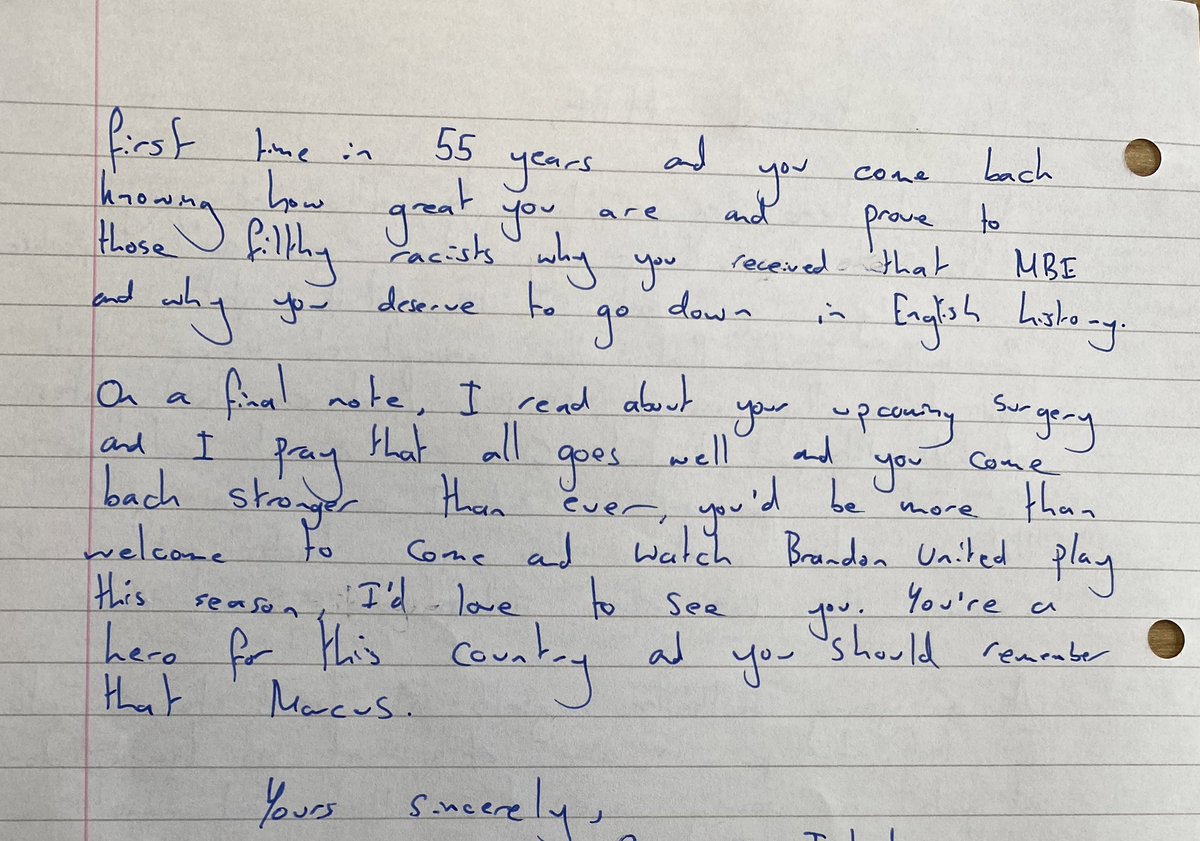 first time in 55 years and you come back
knowing how great you are and prove to
those filthy racists why you received that MBE
and why you deserve to go down in English history.
On a final note, I read about your upcoming surgery
and I pray that all goes well and you come
back stronger than ever, you'd be more than
welcome to come and watch Brandon United play
this season, I'd love to see you. You're a
hero for this country and you should remember
that Marcus.
Yours sincerely,